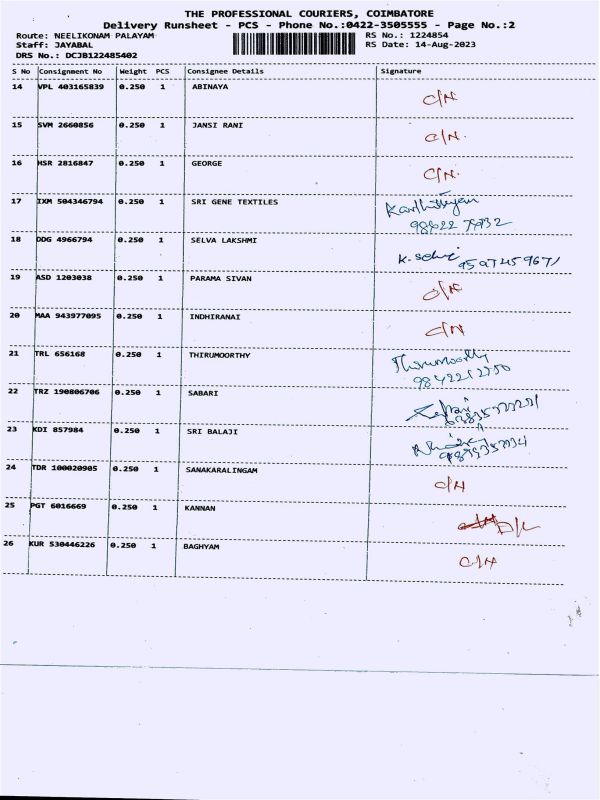 THE PROFESSIONAL COURIERS, COIMBATORE
Delivery Runsheet - PCS - Phone No.:0422-3505555 - Page No.:2
Route: NEELIKONAM PALAYAM RS No.: 1224854
Staff: JAYABAL RS Date: 14-Aug-2023
DRS No.: DCJB122485402
S No Consignment No Weight PCS Consignee Details Signature
14 VPL 403165839 0.250 1 ABINAYA C/N
15 SVM 2660856 0.250 1 JANSI RANI C/N.
16 HSR 2816847 0.250 1 GEORGE C/N.
17 IXM 504346794 0.250 1 SRI GENE TEXTILES
18 DDG 4966794 0.250 1 SELVA LAKSHMI
19 ASD 1203038 0.250 1 PARAMA SIVAN C/N
20 MAA 943977095 0.250 1 INDHIRANAI C/N
21 TRL 656168 0.250 1 THIRUMOORTHY Thirumoorthy
22 TRZ 190806706 0.250 1 SABARI
23 KDI 857984 0.250 1 SRI BALAJI
24 TDR 100020905 0.250 1 SANAKARALINGAM C/N
25 PGT 6016669 0.250 1 KANNAN D/L
26 KUR 530446226 0.250 1 BAGHYAM C/N